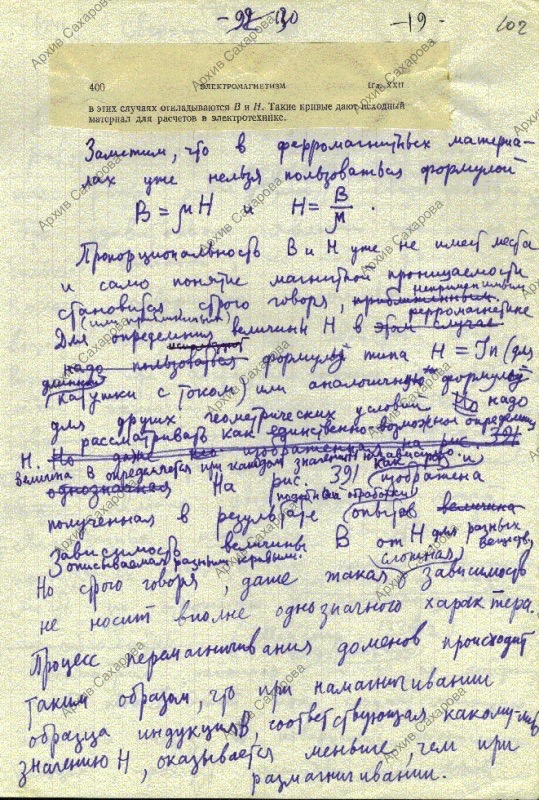 -92- 130 -19- 102
400 ЭЛЕКТРОМАГНЕТИЗМ [Гл. XXII
в этих случаях откладываются B и H. Такие кривые дают исходный
материал для расчетов в электротехнике.
Заметим, что в ферромагнитных материа-
лах уже нельзя пользоваться формулой
B = μH и H = B/μ.
Пропорциональность B и H уже не имеет места
и само понятие магнитной проницаемости
становится строго говоря, неприменимым
(или приближенным) ферромагнетике
Для определения величины H в этом случае
надо пользоваться формулой типа H = In (для
длинной
катушки с током) или аналогичной формулой
для других геометрических условий Но надо
рассматривать как единственно возможное определение
H. Но даже на рис. 391
Величина B определяется при каждом значении H
однозначная На рис. 391 как изображена
подобной обработки
полученная в результате опытов величина
зависимость величины B от H для разных веществ,
описываемая разными кривыми.
Но строго говоря, даже такая сложная зависимость
не носит вполне однозначного характера.
Процесс перемагничивания доменов происходит
таким образом, что при намагничивании
образца индукция B, соответствующая какому-либо
значению H, оказывается меньше, чем при
размагничивании.
Архив Сахарова